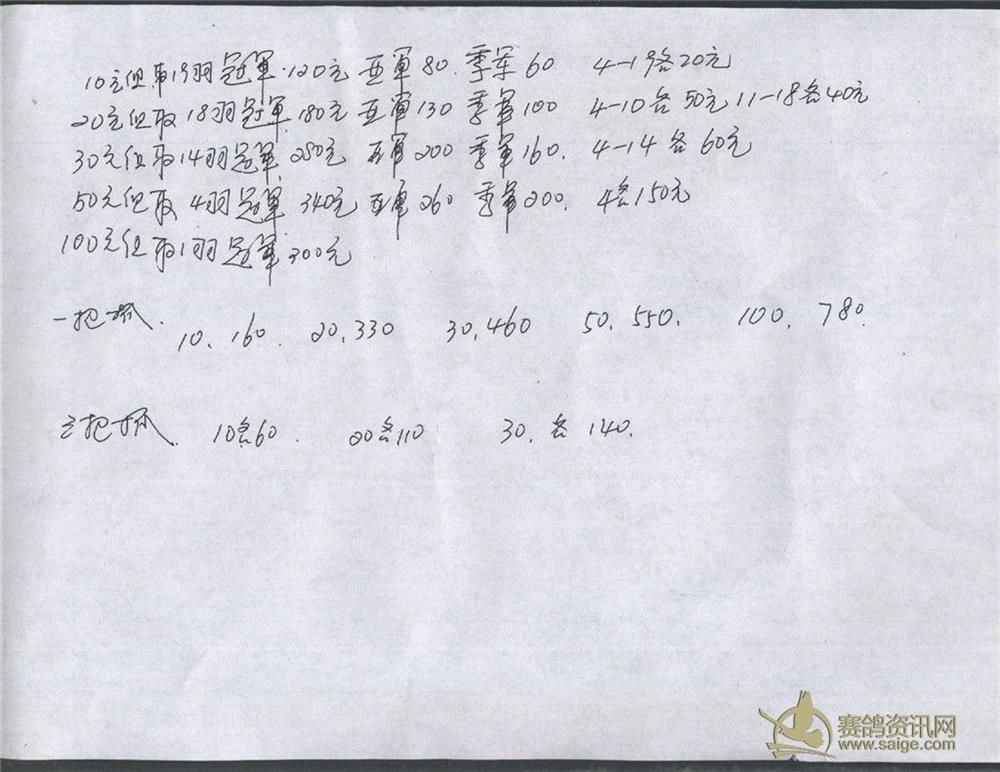 10元组取19羽冠軍120元 亚軍80. 季军60 4-19各20元
20元组取18羽冠軍180元 亚軍130 季軍100 4-10各50元 11-18各40元
30元组取14羽冠軍280元 亚軍200 季軍160. 4-14各60元
50元组取4羽冠軍340元 亚軍260 季軍200. 4名150元
100元组取1羽冠軍300元
一把抓. 10. 160. 20.330 30.460 50.550. 100. 780.
把抓. 10各60. 20各110 30.各140.
赛鸽资讯网
www.saige.com